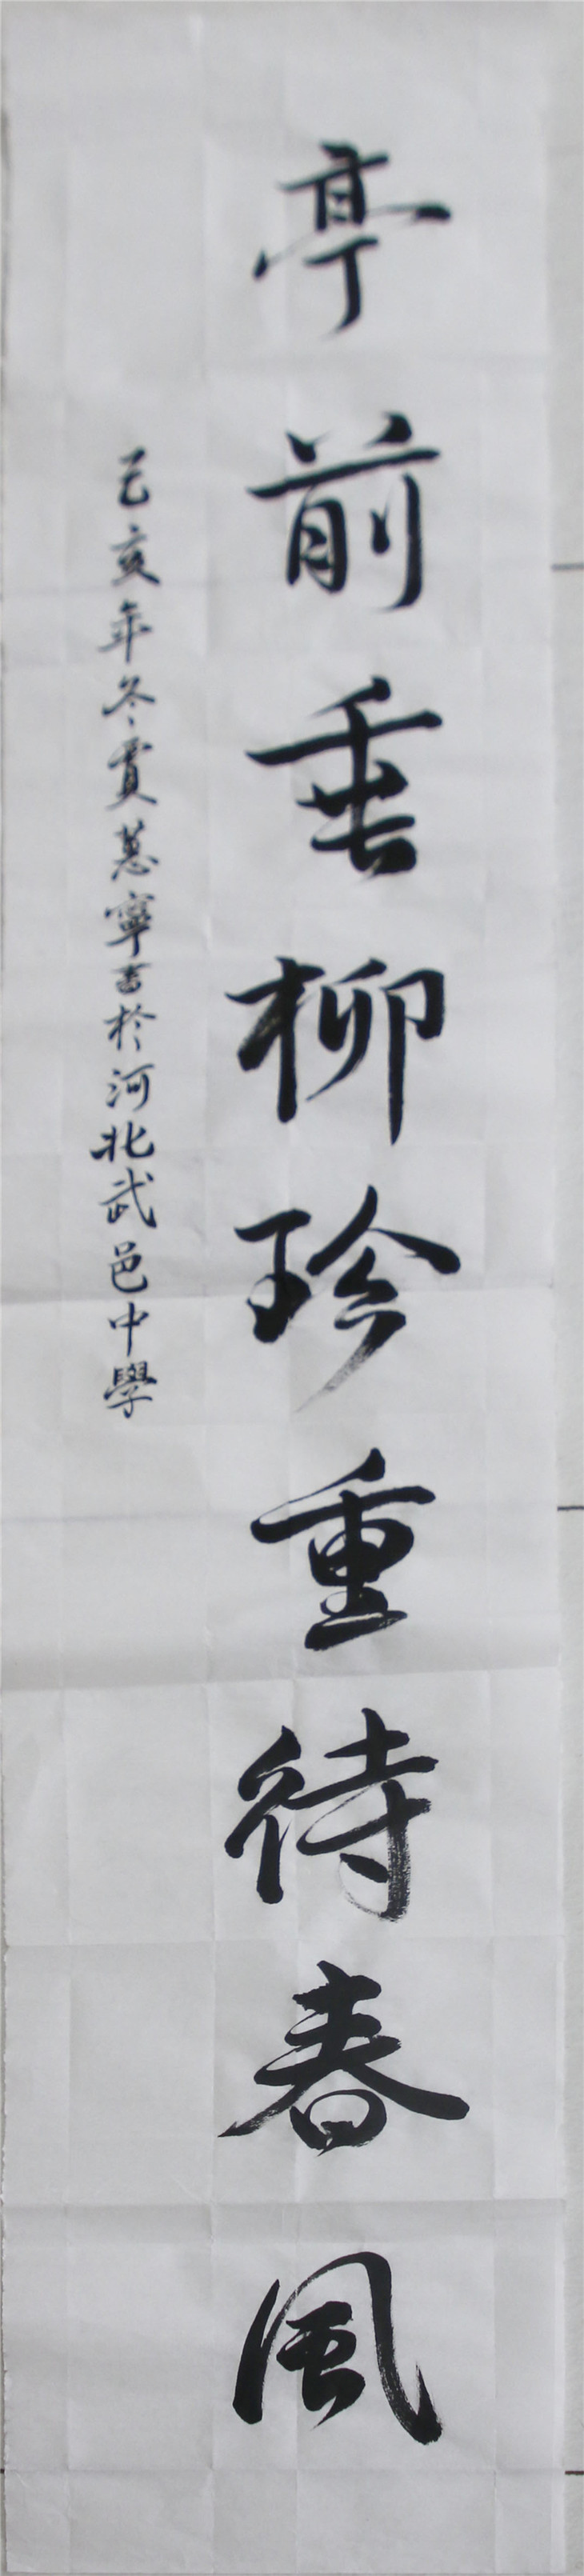 亭前垂柳珍重待春風
己亥年冬賈蕙寧書於河北武邑中學